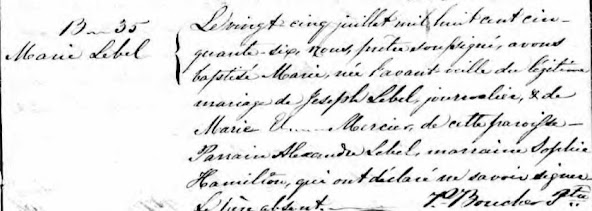 B— 35
Marie Lebel
Le vingt-cinq juillet mil huit cent cin-
quante-six, nous, prêtre soussigné, avons
baptisé Marie, née l'avant veille du légitime
mariage de Joseph Lebel, journalier, & de
Marie Mercier, de cette paroisse—
Parrain Alexandre Lebel, marraine Sophie
Hamilton, qui ont déclaré ne savoir signer
Le père absent. Boucher Ptre